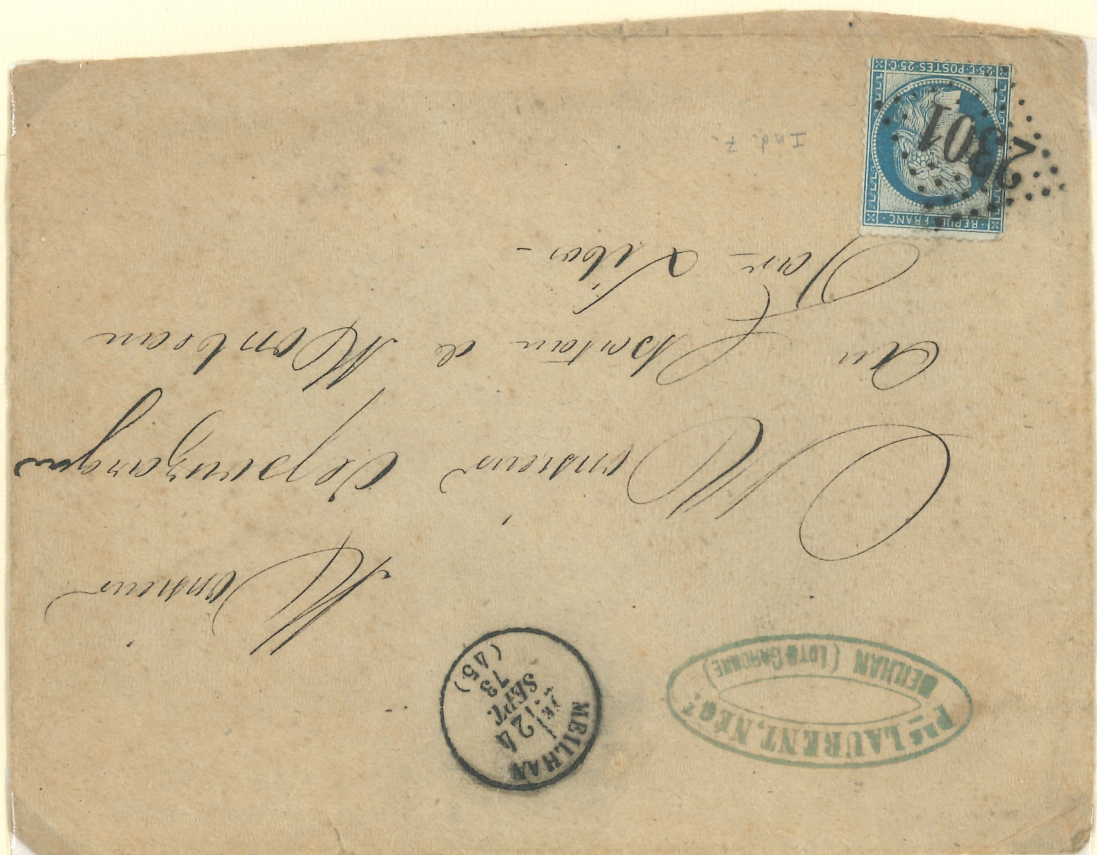 Pre LAURENT, NÉGt
MEILHAN (LOT & GARONNE)
MEILHAN
1E
24
SEPT.
73
(45)
Monsieur
Monsieur
au Chateau de Monbeau
Par Libos -
Ind. 7.
REPUB. FRANC.
25 C. POSTES 25 C.
2301